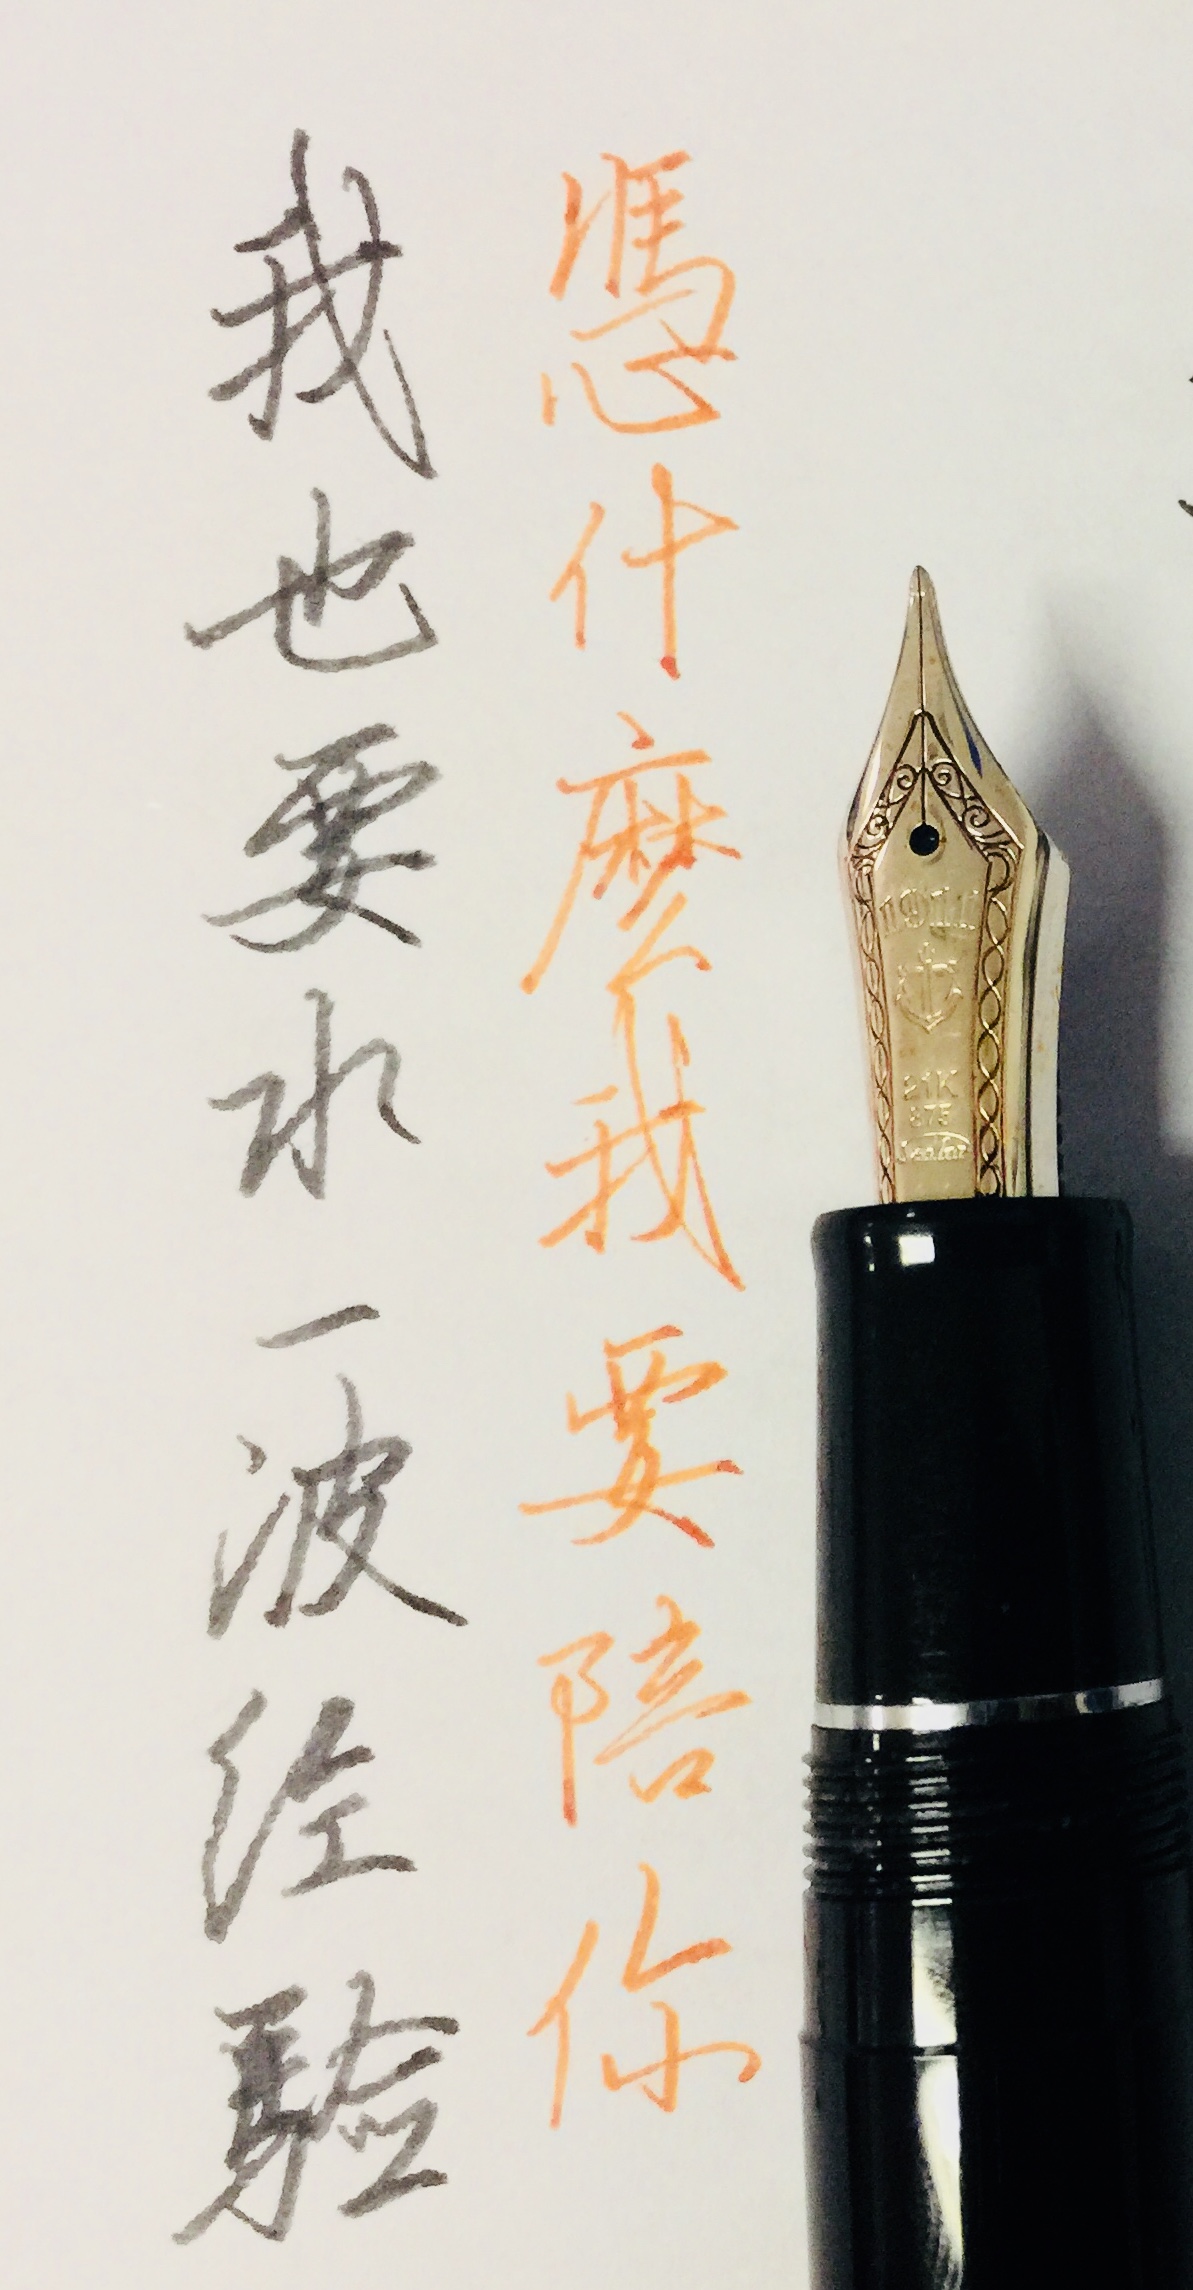 憑什麼我要陪你
我也要水一波经驗
1911
21K
875
Sailor